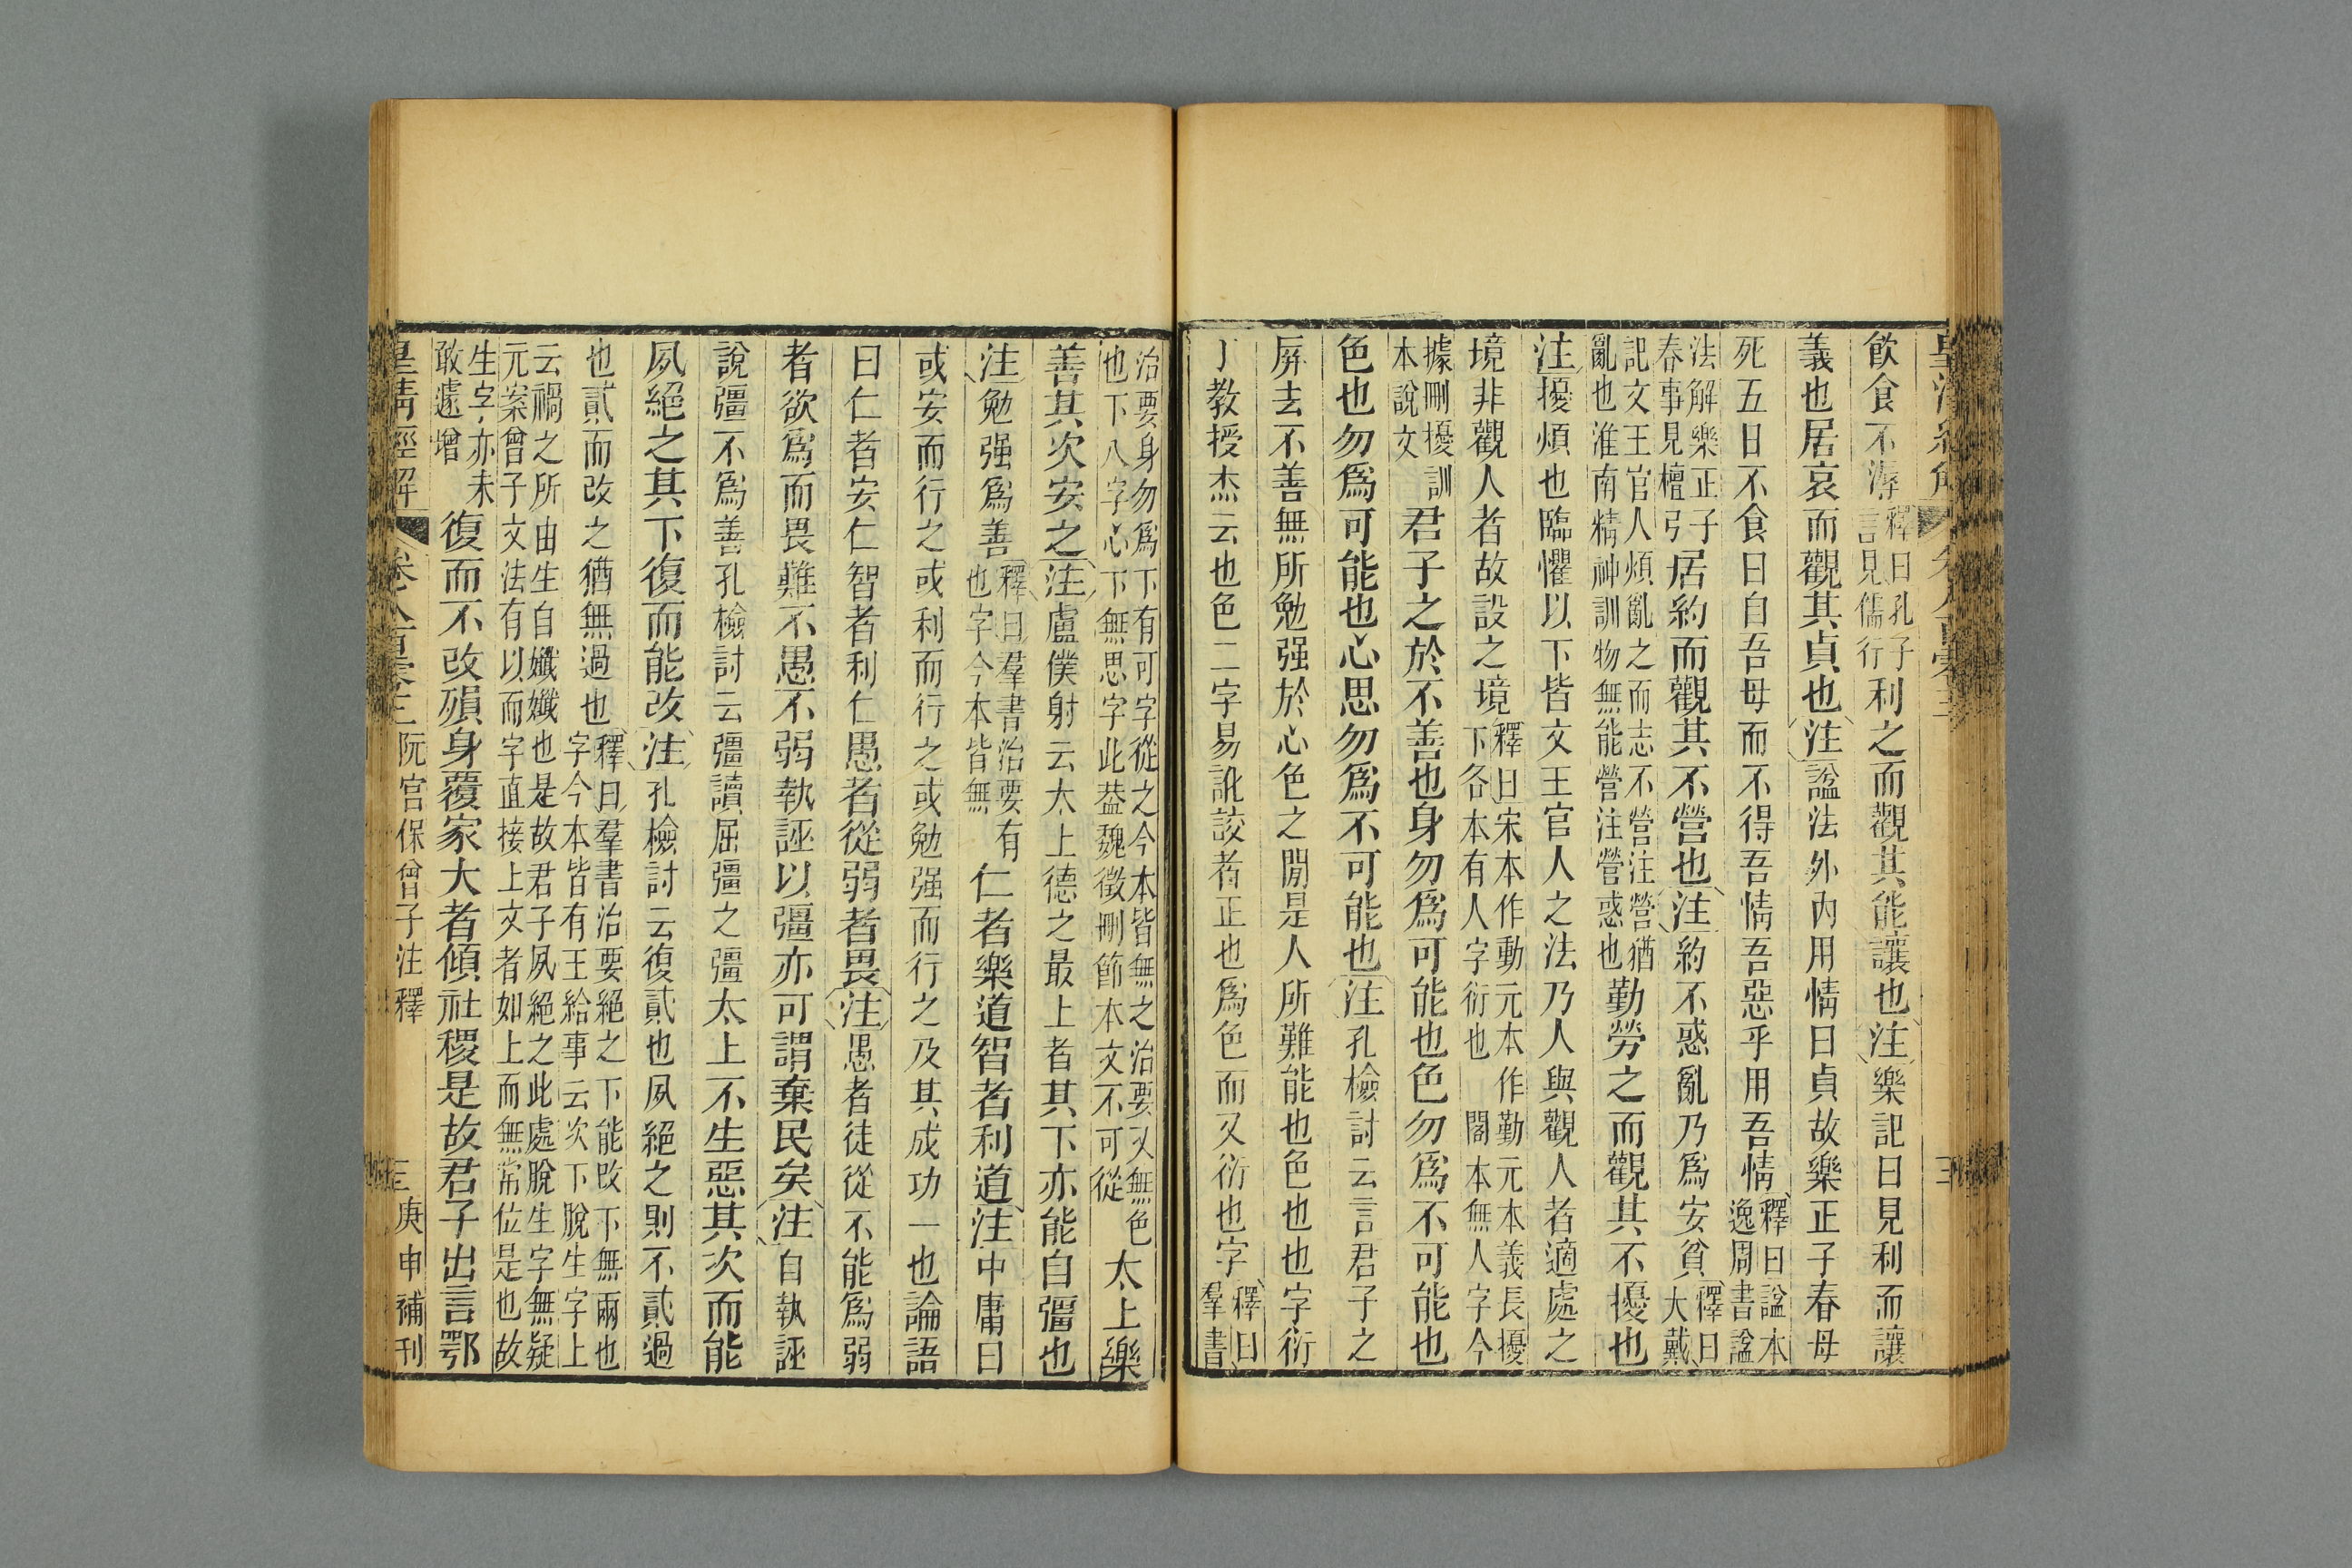 飲食不濘
釋曰孔子
言見儒行
利之而觀其能讓也注樂記曰見利而讓
義也居哀而觀其貞也注諡法外內用情曰貞故樂正子春母
死五日不食曰自吾母而不得吾情吾惡乎用吾情
釋曰諡本
逸周書諡
法解樂正子
春事見檀弓
居約而觀其不營也注約不惑亂乃爲安貧
釋曰
大戴
記文王官人煩亂之而志不營注營猶
亂也淮南精神訓物無能營注營惑也
勤勞之而觀其不擾也
注擾煩也臨懼以下皆文王官人之法乃人與觀人者適處之
境非觀人者故設之境
釋曰宋本作動元本作勤元本義長擾
下各本有人字衍也閣本無人字今
據刪擾訓
本說文
君子之於不善也身勿爲可能也色勿爲不可能也
色也勿爲可能也心思勿爲不可能也注孔檢討云言君子之
屏去不善無所勉强於心色之閒是人所難能也色也也字衍
丁教授杰云也色二字易訛詨者正也爲色而又衍也字
釋曰
羣書
治要身勿爲下有可字從之今本皆無之治要又無色
也下八字心下無思字此葢魏徵刪節本文不可從
太上樂
善其次安之注盧僕射云太上德之最上者其下亦能自彊也
注勉强爲善
釋曰羣書治要有
也字今本皆無
仁者樂道智者利道注中庸曰
或安而行之或利而行之或勉强而行之及其成功一也論語
曰仁者安仁智者利仁愚者從弱者畏注愚者徒從不能爲弱
者欲爲而畏難不愚不弱執誣以彊亦可謂棄民矣注自執誣
說彊不爲善孔檢討云彊讀屈彊之彊太上不生惡其次而能
夙絕之其下復而能改注孔檢討云復貳也夙絕之則不貳過
也貳而改之猶無過也
釋曰羣書治要絕之下能改下無兩也
字今本皆有王給事云次下脫生字上
云禍之所由生自孅孅也是故君子夙絕之此處脫生字無疑
元案曾子文法有以而字直接上文者如上而無常位是也故
生字亦未
敢遽增
復而不改殞身覆家大者傾社稷是故君子出言鄂
皇清經解 卷八百零三 阮宮保曾子注釋 三 庚申補刊